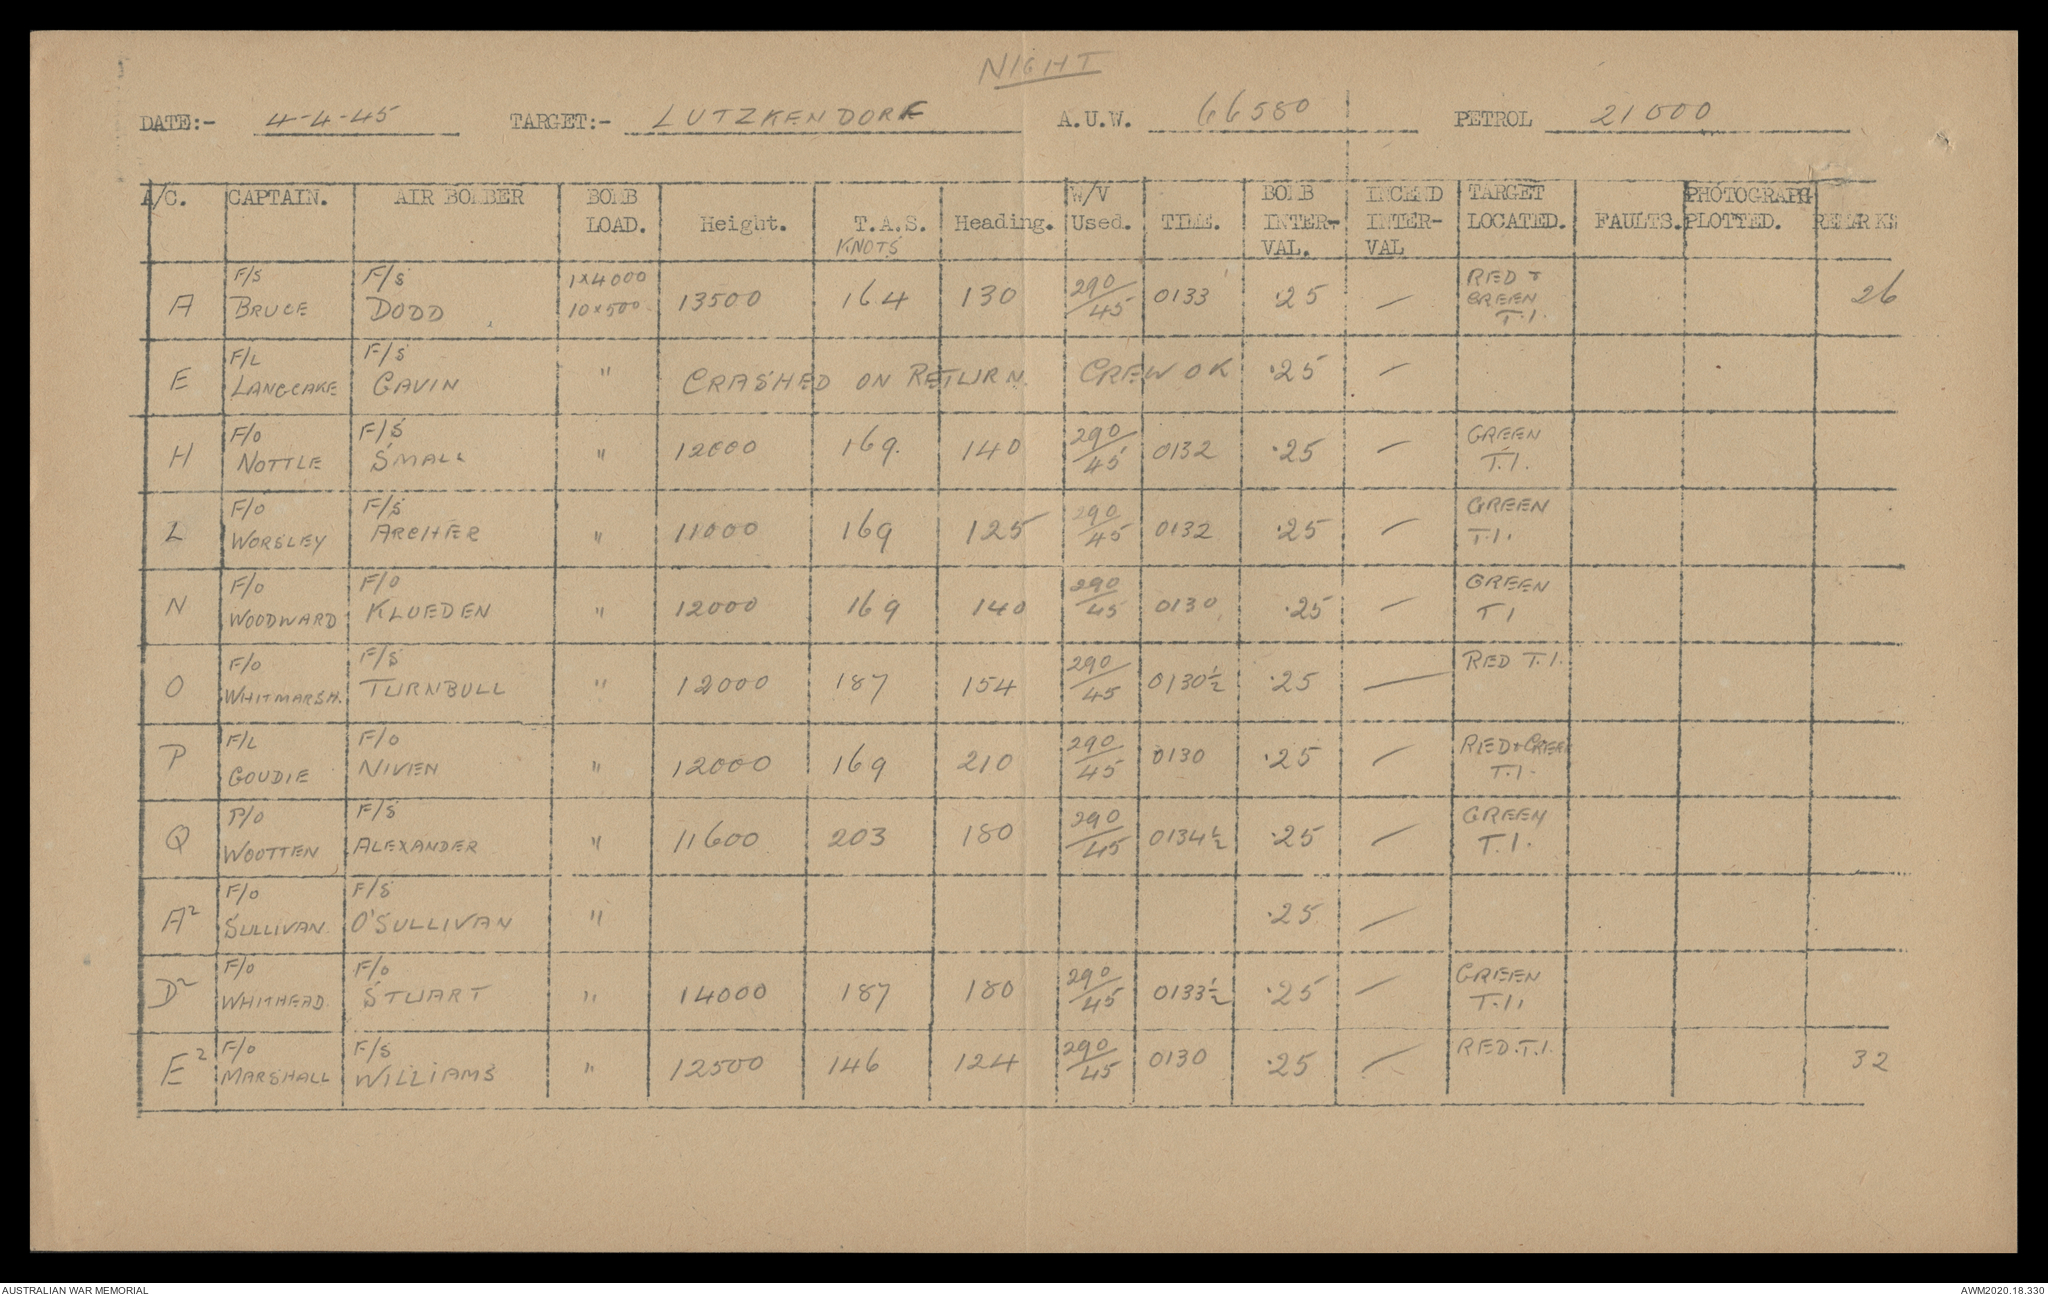 NIGHT
DATE:- 4-4-45 TARGET:- LUTZKENDORF A.U.W. 66580 PETROL 21000
A/C. CAPTAIN. AIR BOMBER BOMB LOAD. Height. T.A.S. KNOTS Heading. W/V Used. TIME. BOMB INTER-VAL. INCEND INTER-VAL TARGET LOCATED. FAULTS. PHOTOGRAPH PLOTTED. REMARKS
A F/S BRUCE F/S DODD 1x4000 10x500 13500 164 130 290/45 0133 .25 — RED & GREEN T.I. 26
E F/L LANGCAKE F/S GAVIN " CRASHED ON RETURN. CREW OK .25 —
H F/O NOTTLE F/S SMALL " 12000 169. 140 290/45 0132 .25 — GREEN T.I.
L F/O WORSLEY F/S ARCHER " 11000 169 125 290/45 0132 .25 — GREEN T.I.
N F/O WOODWARD F/O KLUEDEN " 12000 169 140 290/45 0130 .25 — GREEN T I
O F/O WHITMARSH. F/S TURNBULL " 12000 187 154 290/45 0130½ .25 — RED T.I.
P F/L GOUDIE F/O NIVEN " 12000 169 210 290/45 0130 .25 — RED & GREEN T.I.
Q P/O WOOTTEN F/S ALEXANDER " 11600 203 180 290/45 0134½ .25 — GREEN T.I.
A² F/O SULLIVAN. F/S O'SULLIVAN " .25 —
D² F/O WHITHEAD. F/O STUART " 14000 187 180 290/45 0133½ .25 — GREEN T.I.
E² F/O MARSHALL F/S WILLIAMS " 12500 146 124 290/45 0130 .25 — RED.T.I. 32
AUSTRALIAN WAR MEMORIAL AWM2020.18.330